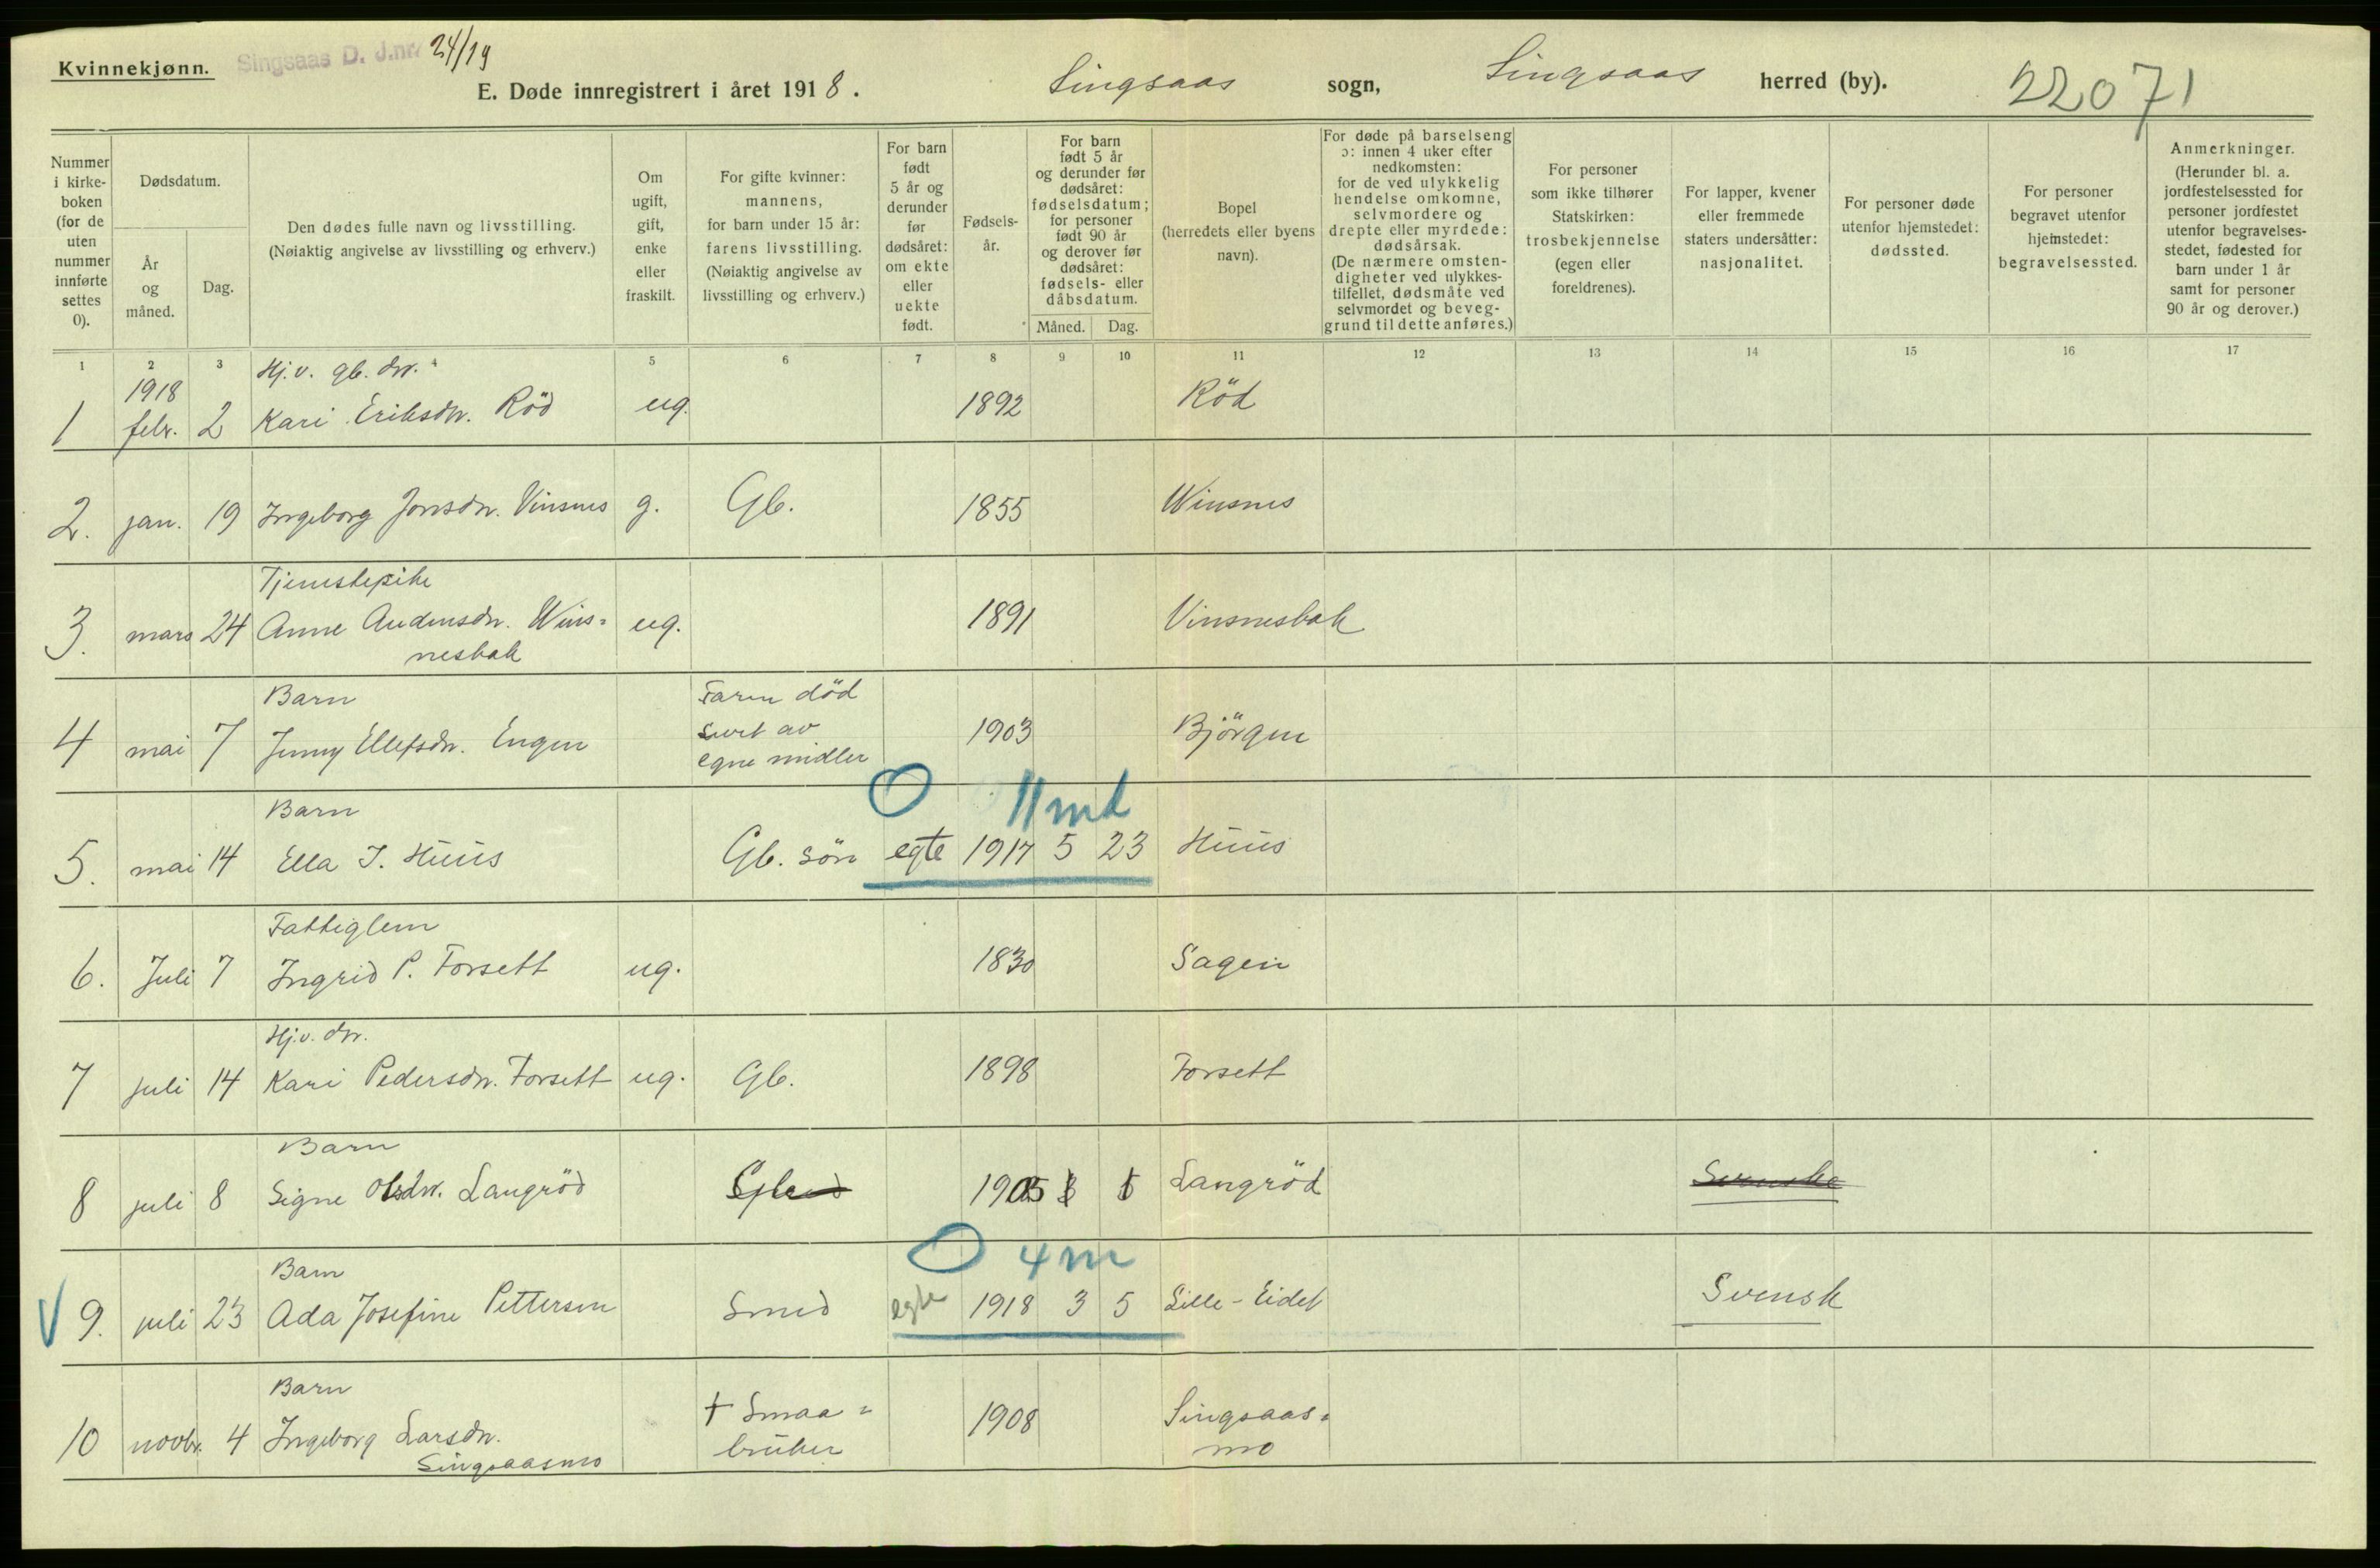 Kvinnekjønn.
Singsaas D. J.nr. 24/19
E. Døde innregistrert i året 1918. Singsaas sogn, Singsaas herred (by). 22071
Nummer i kirke- boken (for de uten nummer innførte settes 0).
Dødsdatum.
År og måned.
Dag.
Den dødes fulle navn og livsstilling.
(Nøiaktig angivelse av livsstilling og erhverv.)
Om ugift, gift, enke eller fraskilt.
For gifte kvinner: mannens, for barn under 15 år: farens livsstilling.
(Nøiaktig angivelse av livsstilling og erhverv.)
For barn født 5 år og derunder før dødsåret: om ekte eller uekte født.
Fødsels- år.
For barn født 5 år og derunder før dødsåret: fødselsdatum; for personer født 90 år og derover før dødsåret: fødsels- eller dåbsdatum.
Måned. Dag.
Bopel (herredets eller byens navn).
For døde på barselseng ɔ: innen 4 uker efter nedkomsten: for de ved ulykkelig hendelse omkomne, selvmordere og drepte eller myrdede: dødsårsak.
(De nærmere omsten- digheter ved ulykkes- tilfellet, dødsmåte ved selvmordet og beveg- grund til dette anføres.)
For personer som ikke tilhører Statskirken: trosbekjennelse (egen eller foreldrenes).
For lapper, kvener eller fremmede staters undersåtter: nasjonalitet.
For personer døde utenfor hjemstedet: dødssted.
For personer begravet utenfor hjemstedet: begravelsessted.
Anmerkninger.
(Herunder bl. a. jordfestelsessted for personer jordfestet utenfor begravelses- stedet, fødested for barn under 1 år samt for personer 90 år og derover.)
1 2 3 4 5 6 7 8 9 10 11 12 13 14 15 16 17
1918 Hj.v. gb. dr.
1 febr. 2 Kari Eriksdr. Röd ug. 1892 Röd
2. jan. 19 Ingeborg Jonsdr. Vinsnes g. Gb. 1855 Winsnes
Tjenestepike
3. mars 24 Anne Andersdr. Wins= ug. 1891 Vinsnesbak
nesbak
Barn Faren död
4 mai 7 Jenny Ellefsdr. Engen levet av 1903 Björgen
egne midler
O 11 md
Barn
5. mai 14 Ella J. Huus Gb. sön egte 1917 5 23 Huus
Fattiglem
6. Juli 7 Ingrid P. Forsett ug. 1830 Sagen
Hj.v. dr.
7 juli 14 Kari Pedersdr. Forsett ug. Gb. 1898 Forsett
Barn
8 juli 8 Signe Olsdr. Langröd 1905 Langröd Svenske
O 4 m
Barn
V 9. juli 23 Ada Josefine Pettersen Smed egte 1918 3 5 Lille-Eidet Svensk
Barn + Smaa=
10 novbr. 4 Ingeborg Larsdr. bruker 1908 Singsaas=
Singsaasmo mo